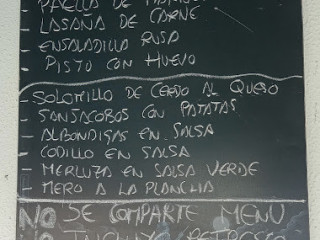 PAELLA DE MARISCO
- LASAÑA DE CARNE
- ENSALADILLA RUSA
- PISTO CON HUEVO
- SOLOMILLO DE CERDO AL QUESO
- SANJACOBOS CON PATATAS
- ALBONDIGAS EN SALSA
- CODILLO EN SALSA
- MERLUZA EN SALSA VERDE
- MERO A LA PLANCHA
NO SE COMPARTE MENU
NO INCLUYE REFRESCO